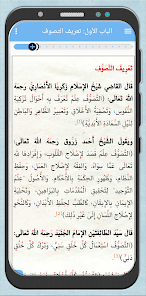 الباب الأول: تعريف التصوف
تَعْرِيفُ التَّصَوُّفِ
قال القاضي شيخُ الإسلام زكريا الأنصاري رحمه
الله تعالى: (التَّصَوُّفُ عِلْمٌ تُعْرَفُ بِهِ أَحْوَالُ تَزْكِيَةِ
النُّفُوسِ، وَتَصْفِيَةِ الأَخْلَاقِ، وَتَعْمِيرِ الظَّاهِرِ وَالبَاطِنِ
لِنَيْلِ السَّعَادَةِ الأَبَدِيَّةِ)
ويقول الشيخُ أحمد زروق رحمه الله تعالى:
(التَّصَوُّفُ عِلْمٌ قُصِدَ لِإِصْلَاحِ القُلُوبِ، وَإِفْرَادِهَا لله
تعالى عمَّا سواه. والفقه لإصلاح العمل، وحفظ
النظام، وظهور الحكمة بالأحكام. والأصول "علم
التوحيد" لتحقيق المقدمات بالبراهين، وتحلية
الإيمان بالإيقان، كالطب لحفظ الأبدان، وكالنحو
لإصلاح اللسان إلى غير ذلك)
قال سيدُ الطائفتين الإمامُ الجنيد رحمه الله:
(التصوف استعمال كل خلق سني، وترك كل خلق
دني)